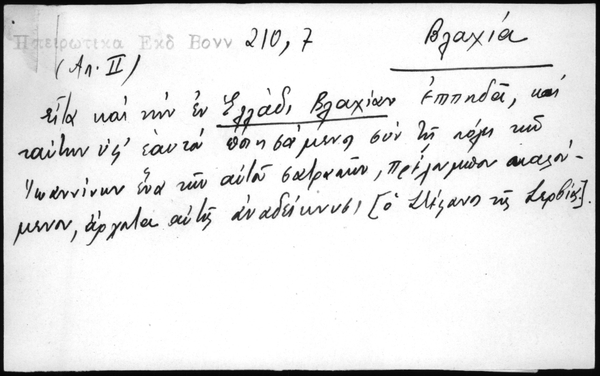 Ηπειρωτικα Εκδ Βονν 210,7 Βλαχία
(Απ. II)
εἶτα καὶ τὴν ἐν Ἑλλάδι Βλαχίαν ἐπιπηδᾶ, καὶ
ταύτην ὑφ' ἑαυτὸ ποιησάμενος σὺν τῇ πόλει τῶν
Ἰωαννίνων ἕνα τῶν αὐτοῦ σατραπῶν, Πρέλουμπον καλού-
μενον, ἄρχοντα αὐτῆς ἀναδείκνυσι [ὁ Στέφανος τῆς Σερβίας].